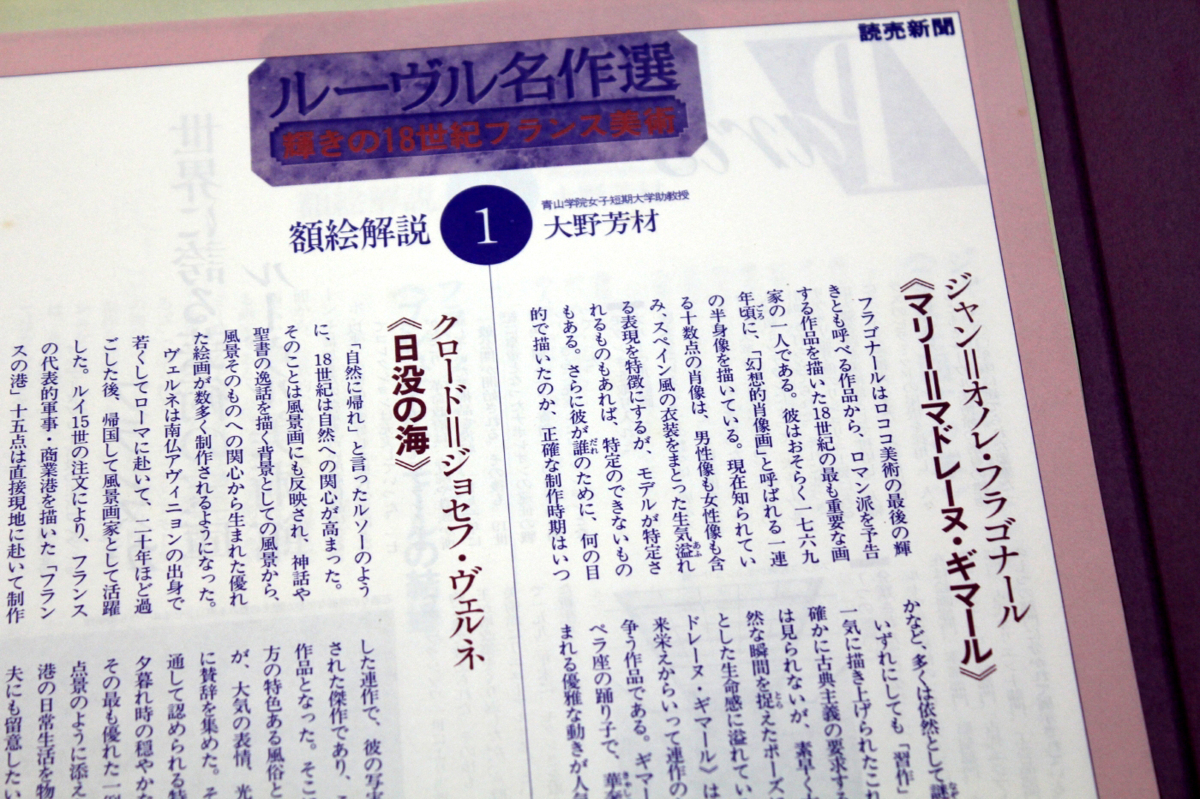 読売新聞
ルーヴル名作選
輝きの18世紀フランス美術
額絵解説
1
青山学院女子短期大学助教授
大野芳材
ジャン=オノレ・フラゴナール
《マリー=マドレーヌ・ギマール》
フラゴナールはロココ美術の最後の輝
きとも呼べる作品から、ロマン派を予告
する作品を描いた18世紀の最も重要な画
家の一人である。彼はおそらく一七六九
年頃に、「幻想的肖像画」と呼ばれる一連
の半身像を描いている。現在知られてい
る十数点の肖像は、男性像も女性像も含
み、スペイン風の衣装をまとった生気溢れ
る表現を特徴にするが、モデルが特定さ
れるものもあれば、特定のできないもの
もある。さらに彼が誰のために、何の目
的で描いたのか、正確な制作時期はいつ
かなど、多くは依然として謎
いずれにしても「習作」
一気に描き上げられたこれ
確かに古典主義の要求する
は見られないが、素早く
然な瞬間を捉えたポーズに
とした生命感に溢れてい
ドレーヌ・ギマール》は
来栄えからいって連作の
争う作品である。ギマー
ペラ座の踊り子で、華奢
まれる優雅な動きが人気
クロード=ジョセフ・ヴェルネ
《日没の海》
「自然に帰れ」と言ったルソーのよう
に、18世紀は自然への関心が高まった。
そのことは風景画にも反映され、神話や
聖書の逸話を描く背景としての風景から、
風景そのものへの関心から生まれた優れ
た絵画が数多く制作されるようになった。
ヴェルネは南仏アヴィニョンの出身で
若くしてローマに赴いて、二十年ほど過
ごした後、帰国して風景画家として活躍
した。ルイ15世の注文により、フランス
の代表的軍事・商業港を描いた「フラン
スの港」十五点は直接現地に赴いて制作
した連作で、彼の写実
された傑作であり、
作品となった。そこに
方の特色ある風俗と
が、大気の表情、光
に賛辞を集めた。そ
通して認められる特
夕暮れ時の穏やかな
その最も優れた一
点景のように添え
港の日常生活を物
夫にも留意したい